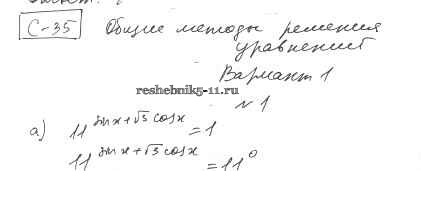 С-35 Общие методы решения
уравнений
Вариант 1
reshebnik5-11.ru
№ 1
а) 11^{sin x + √3 cos x} = 1
11^{sin x + √3 cos x} = 11^0